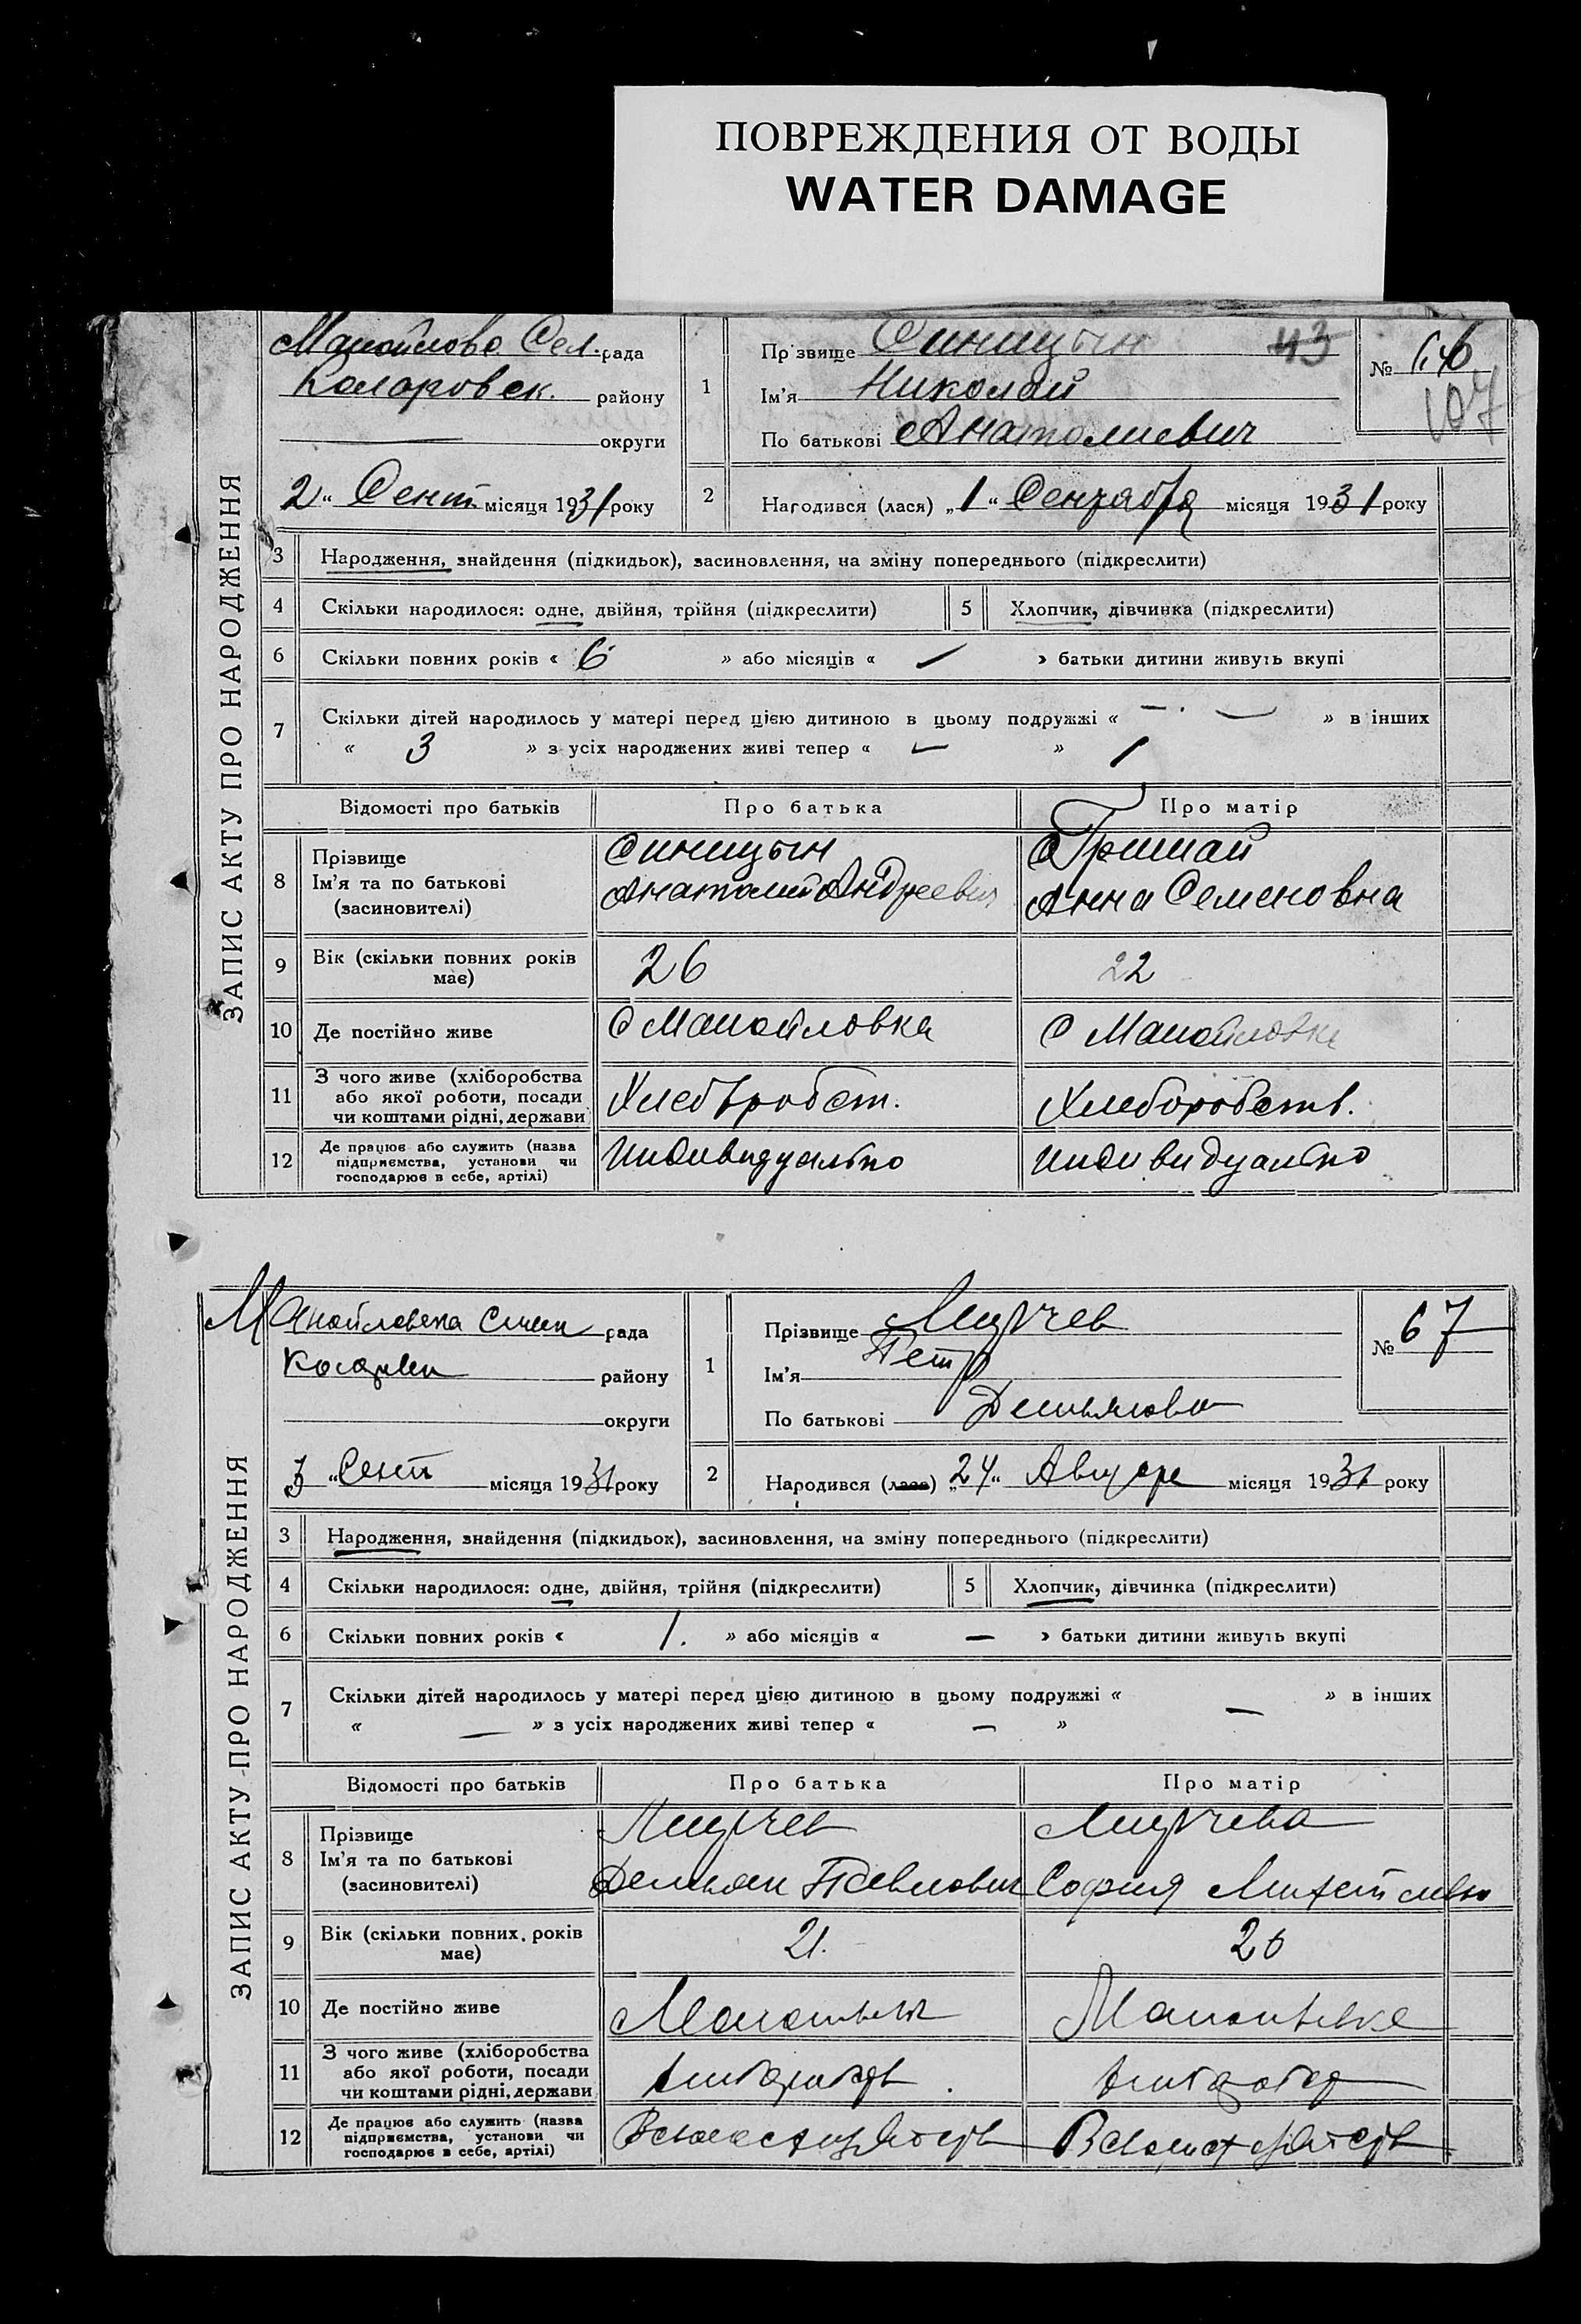 ПОВРЕЖДЕНИЯ ОТ ВОДЫ
WATER DAMAGE
ЗАПИС АКТУ ПРО НАРОДЖЕННЯ
Манойлово Сел. рада
Коларовск. району
округи
2 " Сент. місяця 1931 року
1
Прізвище Синицын
43
Ім'я Николай
По батькові Анатолиевич
№ 66
107
2 Народився (лася) „1" Сентября місяця 1931 року
3 Народження, знайдення (підкидьок), засиновлення, на зміну попереднього (підкреслити)
4 Скільки народилося: одне, двійня, трійня (підкреслити) 5 Хлопчик, дівчинка (підкреслити)
6 Скільки повних років « 6 » або місяців « — » батьки дитини живуть вкупі
7 Скільки дітей народилось у матері перед цією дитиною в цьому подружжі « — » в інших
« 3 » з усіх народжених живі тепер « — » 1
Відомості про батьків Про батька Про матір
8 Прізвище
Ім'я та по батькові
(засновителі)
Синицын
Анатолий Андреевич
Анна Семеновна
9 Вік (скільки повних років має) 26 22
10 Де постійно живе С Манойловка С Манойловка
11 З чого живе (хліборобства
або якої роботи, посади
чи коштами рідні, держави
Хлеборобст. Хлеборобств.
12 Де працює або служить (назва
підприємства, установи чи
господарює в себе, артілі)
Индивидуально Индивидуально
ЗАПИС АКТУ ПРО НАРОДЖЕННЯ
Манойловска рада
району
округи
3 " Сент місяця 1931 року
1
Прізвище
Ім'я Петр
По батькові
№ 67
2 Народився (лася) „24" місяця 1931 року
3 Народження, знайдення (підкидьок), засиновлення, на зміну попереднього (підкреслити)
4 Скільки народилося: одне, двійня, трійня (підкреслити) 5 Хлопчик, дівчинка (підкреслити)
6 Скільки повних років « 1. » або місяців « — » батьки дитини живуть вкупі
7 Скільки дітей народилось у матері перед цією дитиною в цьому подружжі « — » в інших
« — » з усіх народжених живі тепер « — »
Відомості про батьків Про батька Про матір
8 Прізвище
Ім'я та по батькові
(засиновителі)
Демьян Павлович
София
9 Вік (скільки повних років має) 21. 26
10 Де постійно живе
11 З чого живе (хліборобства
або якої роботи, посади
чи коштами рідні, держави
12 Де працює або служить (назва
підприємства, установи чи
господарює в себе, артілі)